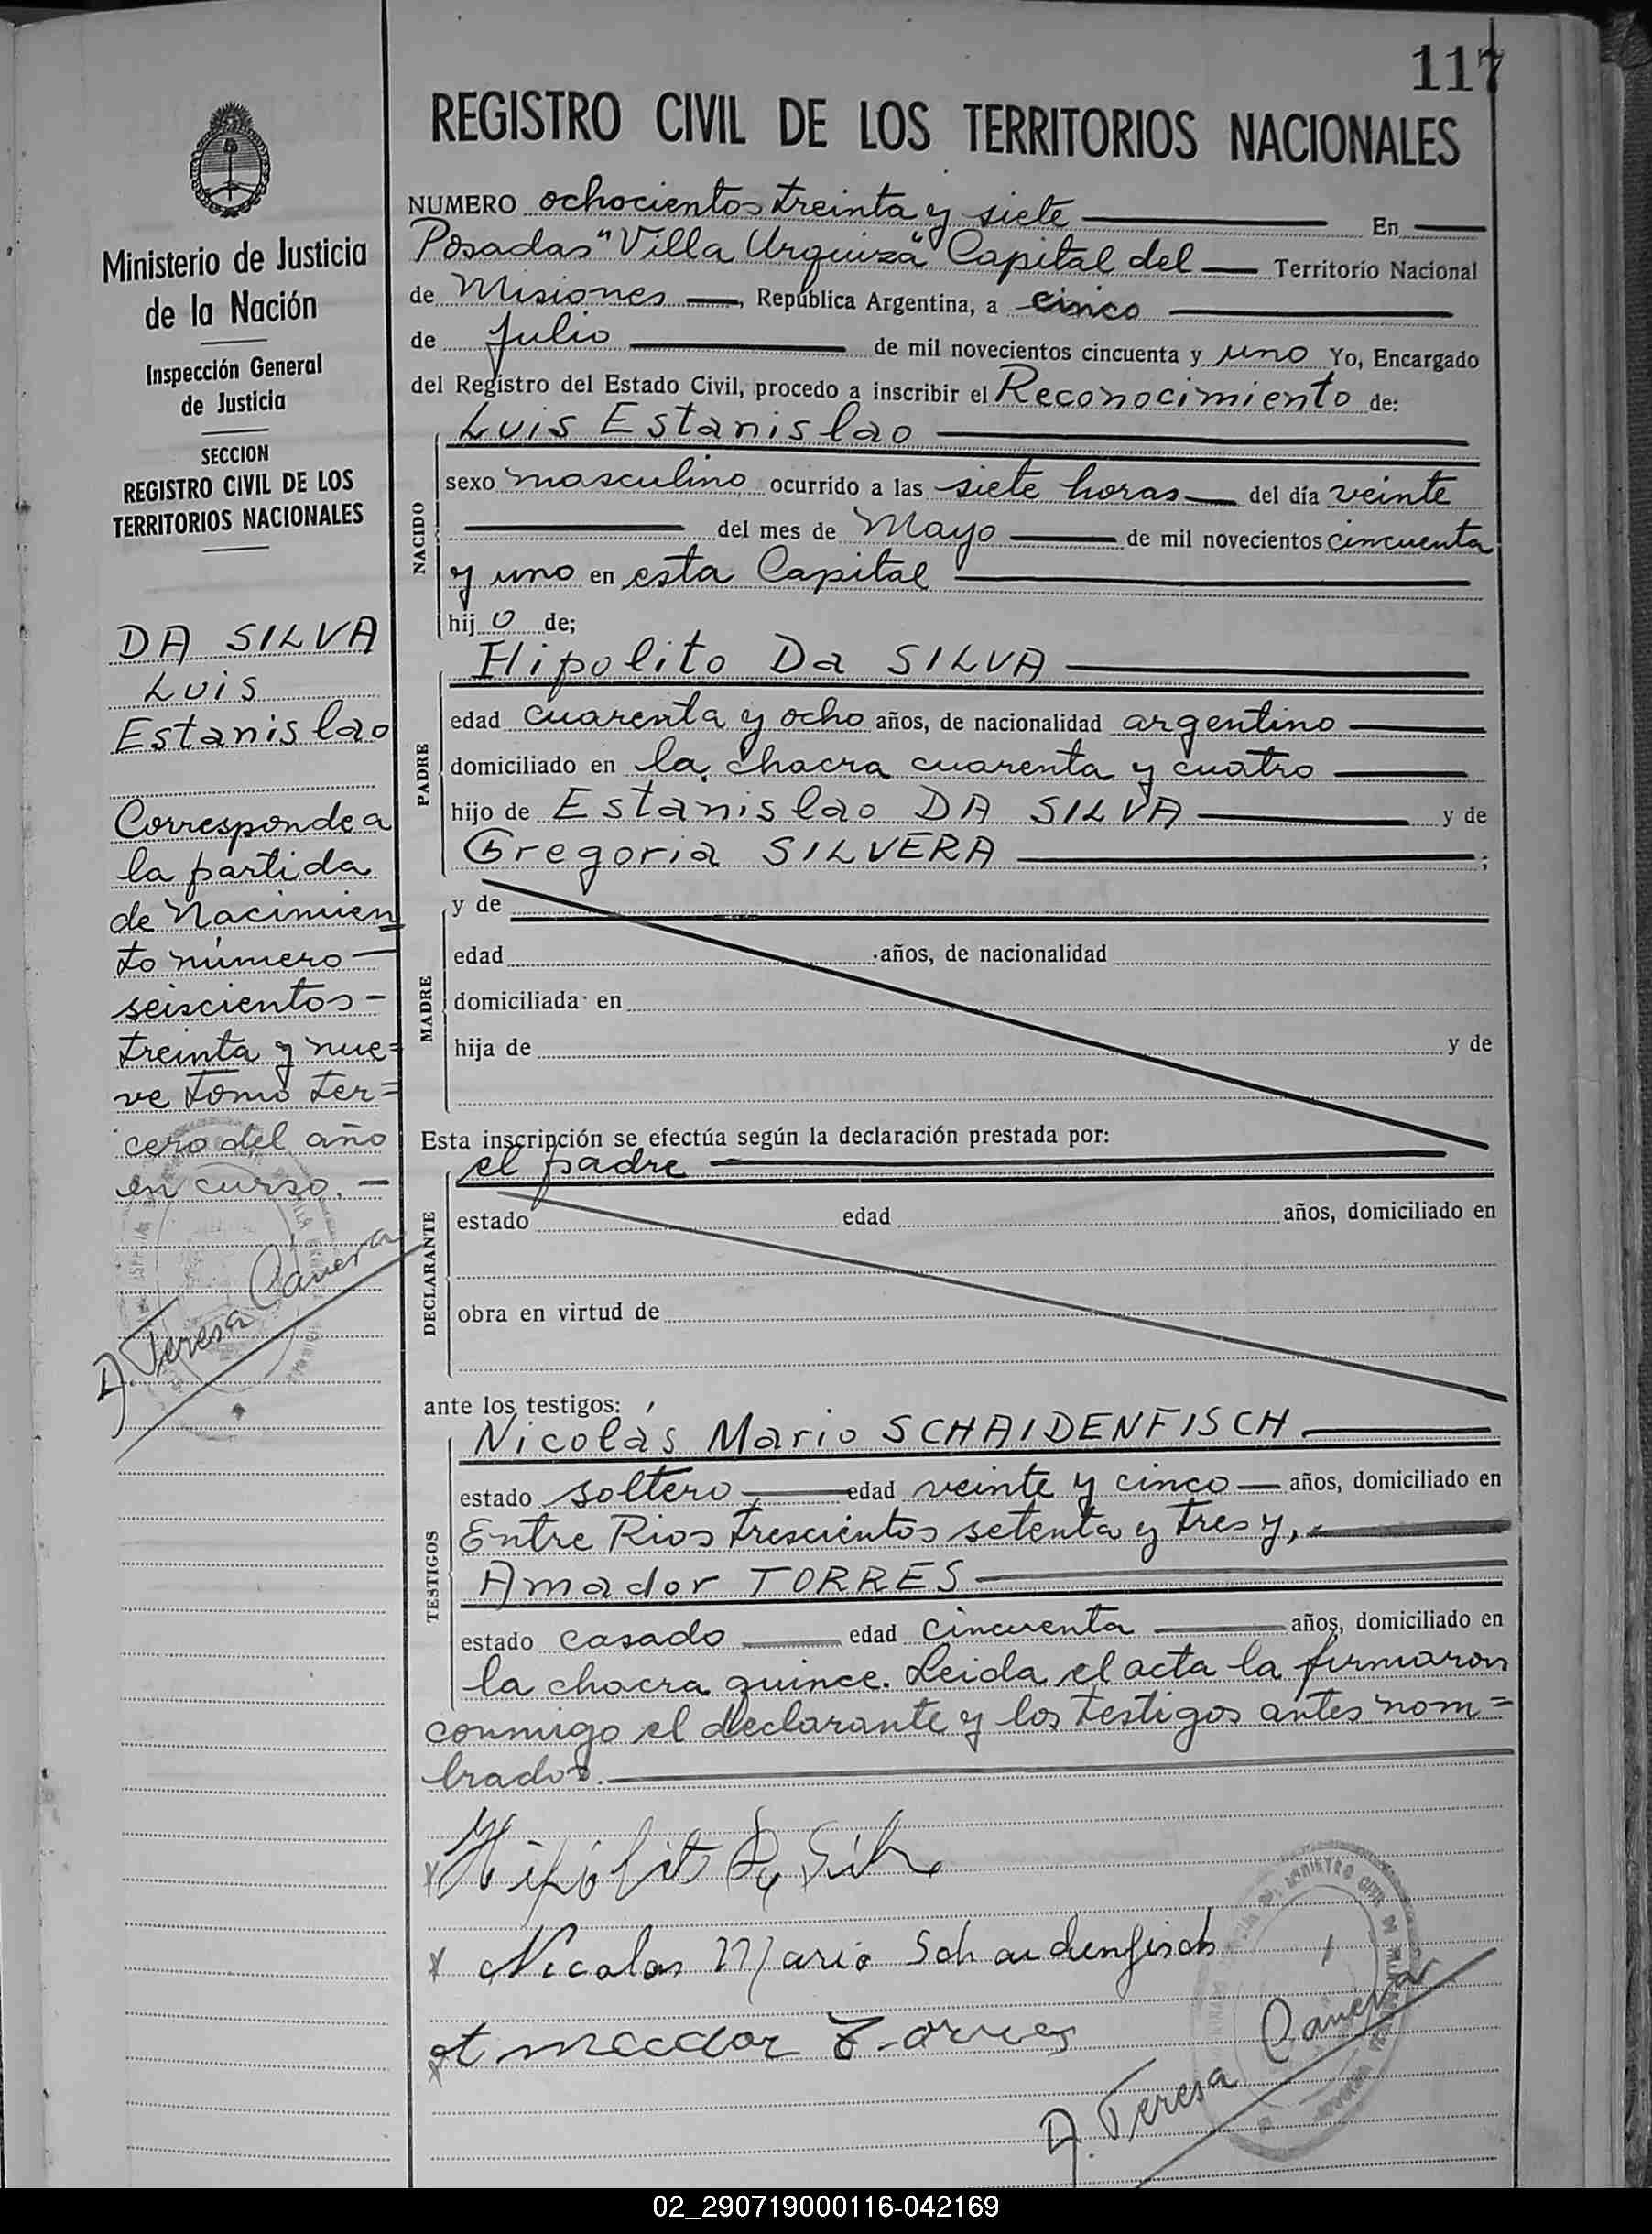 117
REGISTRO CIVIL DE LOS TERRITORIOS NACIONALES
Ministerio de Justicia
de la Nación
Inspección General
de Justicia
SECCION
REGISTRO CIVIL DE LOS
TERRITORIOS NACIONALES
DA SILVA
Luis
Estanislao
Corresponde a
la partida
de Nacimien=
to número —
seiscientos -
treinta y nue=
ve tomo ter=
cero del año
en curso. —
A. Teresa Canera
NUMERO ochocientos treinta y siete En
Posadas "Villa Urquiza" Capital del Territorio Nacional
de Misiones, República Argentina, a cinco
de Julio de mil novecientos cincuenta y uno Yo, Encargado
del Registro del Estado Civil, procedo a inscribir el Reconocimiento de:
NACIDO
Luis Estanislao
sexo masculino ocurrido a las siete horas del día veinte
del mes de Mayo de mil novecientos cincuenta
y uno en esta Capital
hijo de;
PADRE
Hipolito Da SILVA
edad cuarenta y ocho años, de nacionalidad argentino
domiciliado en la chacra cuarenta y cuatro
hijo de Estanislao DA SILVA y de
Gregoria SILVERA ;
MADRE
y de
edad años, de nacionalidad
domiciliada en
hija de y de
Esta inscripción se efectúa según la declaración prestada por:
DECLARANTE
el padre
estado edad años, domiciliado en
obra en virtud de
ante los testigos:
TESTIGOS
Nicolás Mario SCHAIDENFISCH
estado soltero edad veinte y cinco años, domiciliado en
Entre Rios trescientos setenta y tres y,
Amador TORRES
estado casado edad cincuenta años, domiciliado en
la chacra quince. Leida el acta la firmaron
conmigo el declarante y los testigos antes nom=
brados.
x Hipolito Da Silva
x Nicolas Mario Schaidenfisch
x Amador Torres
A. Teresa Canera
02_290719000116-042169